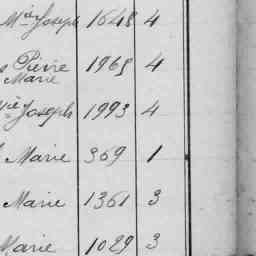 Mie Joseph 1648 4
Pierre 1965 4
Marie
Joseph 1993 4
Marie 369 1
Marie 1361 3
Marie 1029 3